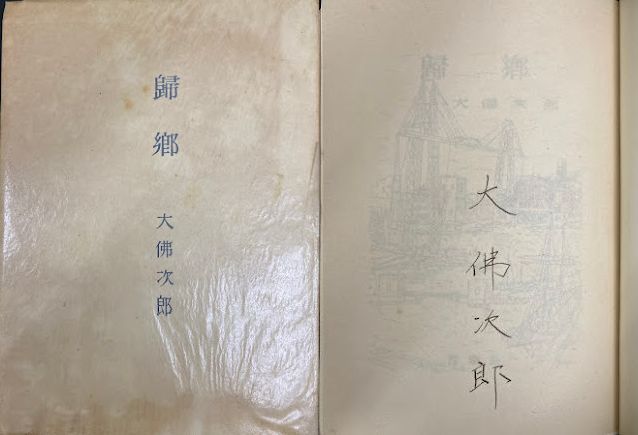 歸鄉
大佛次郎
歸鄉
大佛次郎
大佛次郎